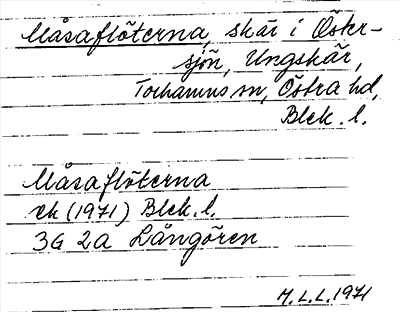 Måsaflöterna, skär i Öster-
sjön, Ungskär,
Torhamns sn, Östra hd,
Blek. l.
Måsaflöterna
ek (1971) Blek. l.
3G 2a Långören
M. L. L. 1971